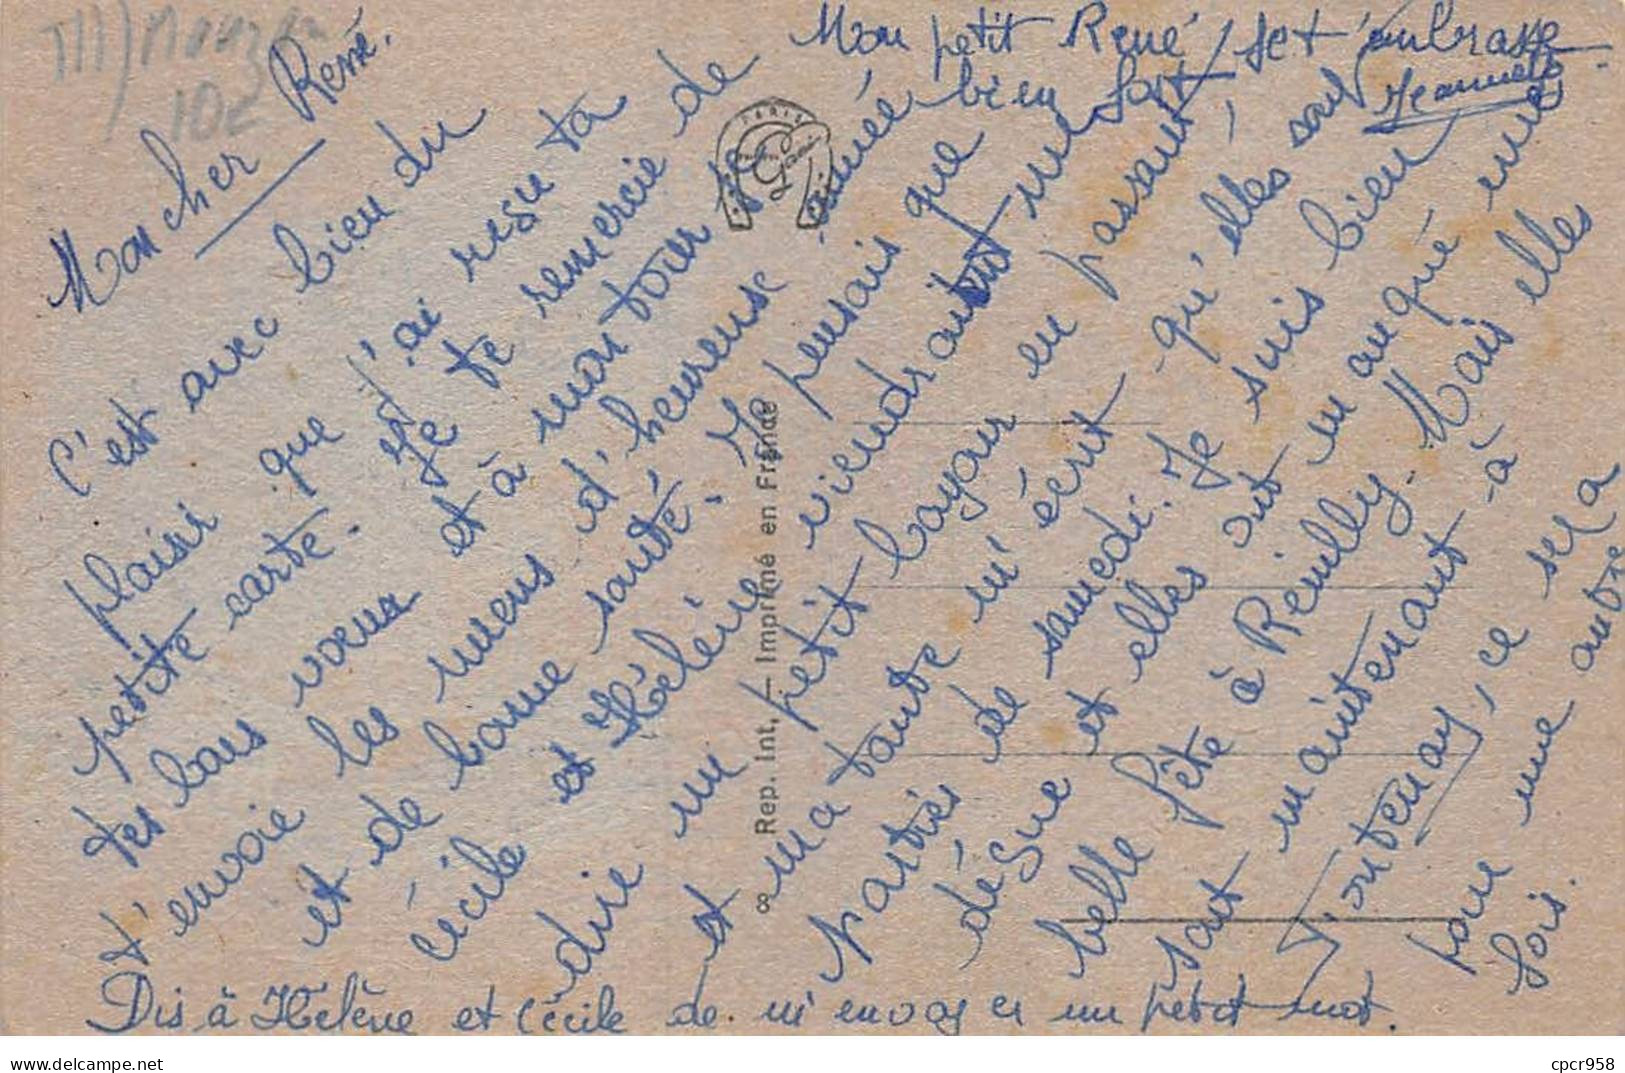 Mon cher René.
C'est avec bien du
plaisir que j'ai reçu ta
petite carte. Je te remercie de
tes bons voeux et à mon tour je
t'envoie les miens d'heureuse année
et de bonne santé. Je pensais que
Cécile et Hélène viendraient me
dire un petit bonjour en passant,
et ma tante m'écrit qu'elles sont
parties de samedi. Je suis bien
déçue et elles ont manqué une
belle fête à Reuilly. Mais elles
sont maintenant à
Fontenay, ce sera
pour une autre
fois.
Dis à Hélène et Cécile de m'envoyer un petit mot.
Mon petit René, je t'embrasse
bien fort
Jeannette
10€
PARIS
8 Rep. Int, — Imprimé en France
cpcr958